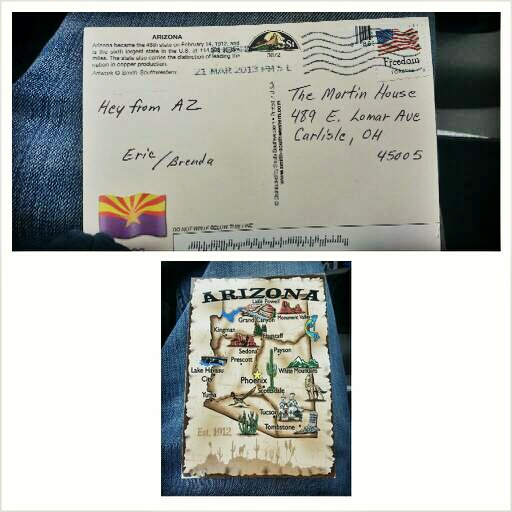 ARIZONA
Arizona became the 48th state on February 14, 1912, and
is the sixth largest state in the U.S. at 114,
miles. The state also carries the distinction of leading the
nation in copper production.
Artwork © Smith Southwestern
21 MAR 2013 PM 5 L
Freedom
Hey from AZ
Eric/Brenda
The Martin House
489 E. Lomar Ave
Carlisle, OH
45005
DO NOT WRITE BELOW THIS LINE
ARIZONA
Lake Powell
Grand Canyon
Monument Valley
Kingman
Flagstaff
Sedona
Payson
Prescott
Lake Havasu
City
White Mountains
Phoenix
Scottsdale
Yuma
Tucson
Tombstone
Est. 1912